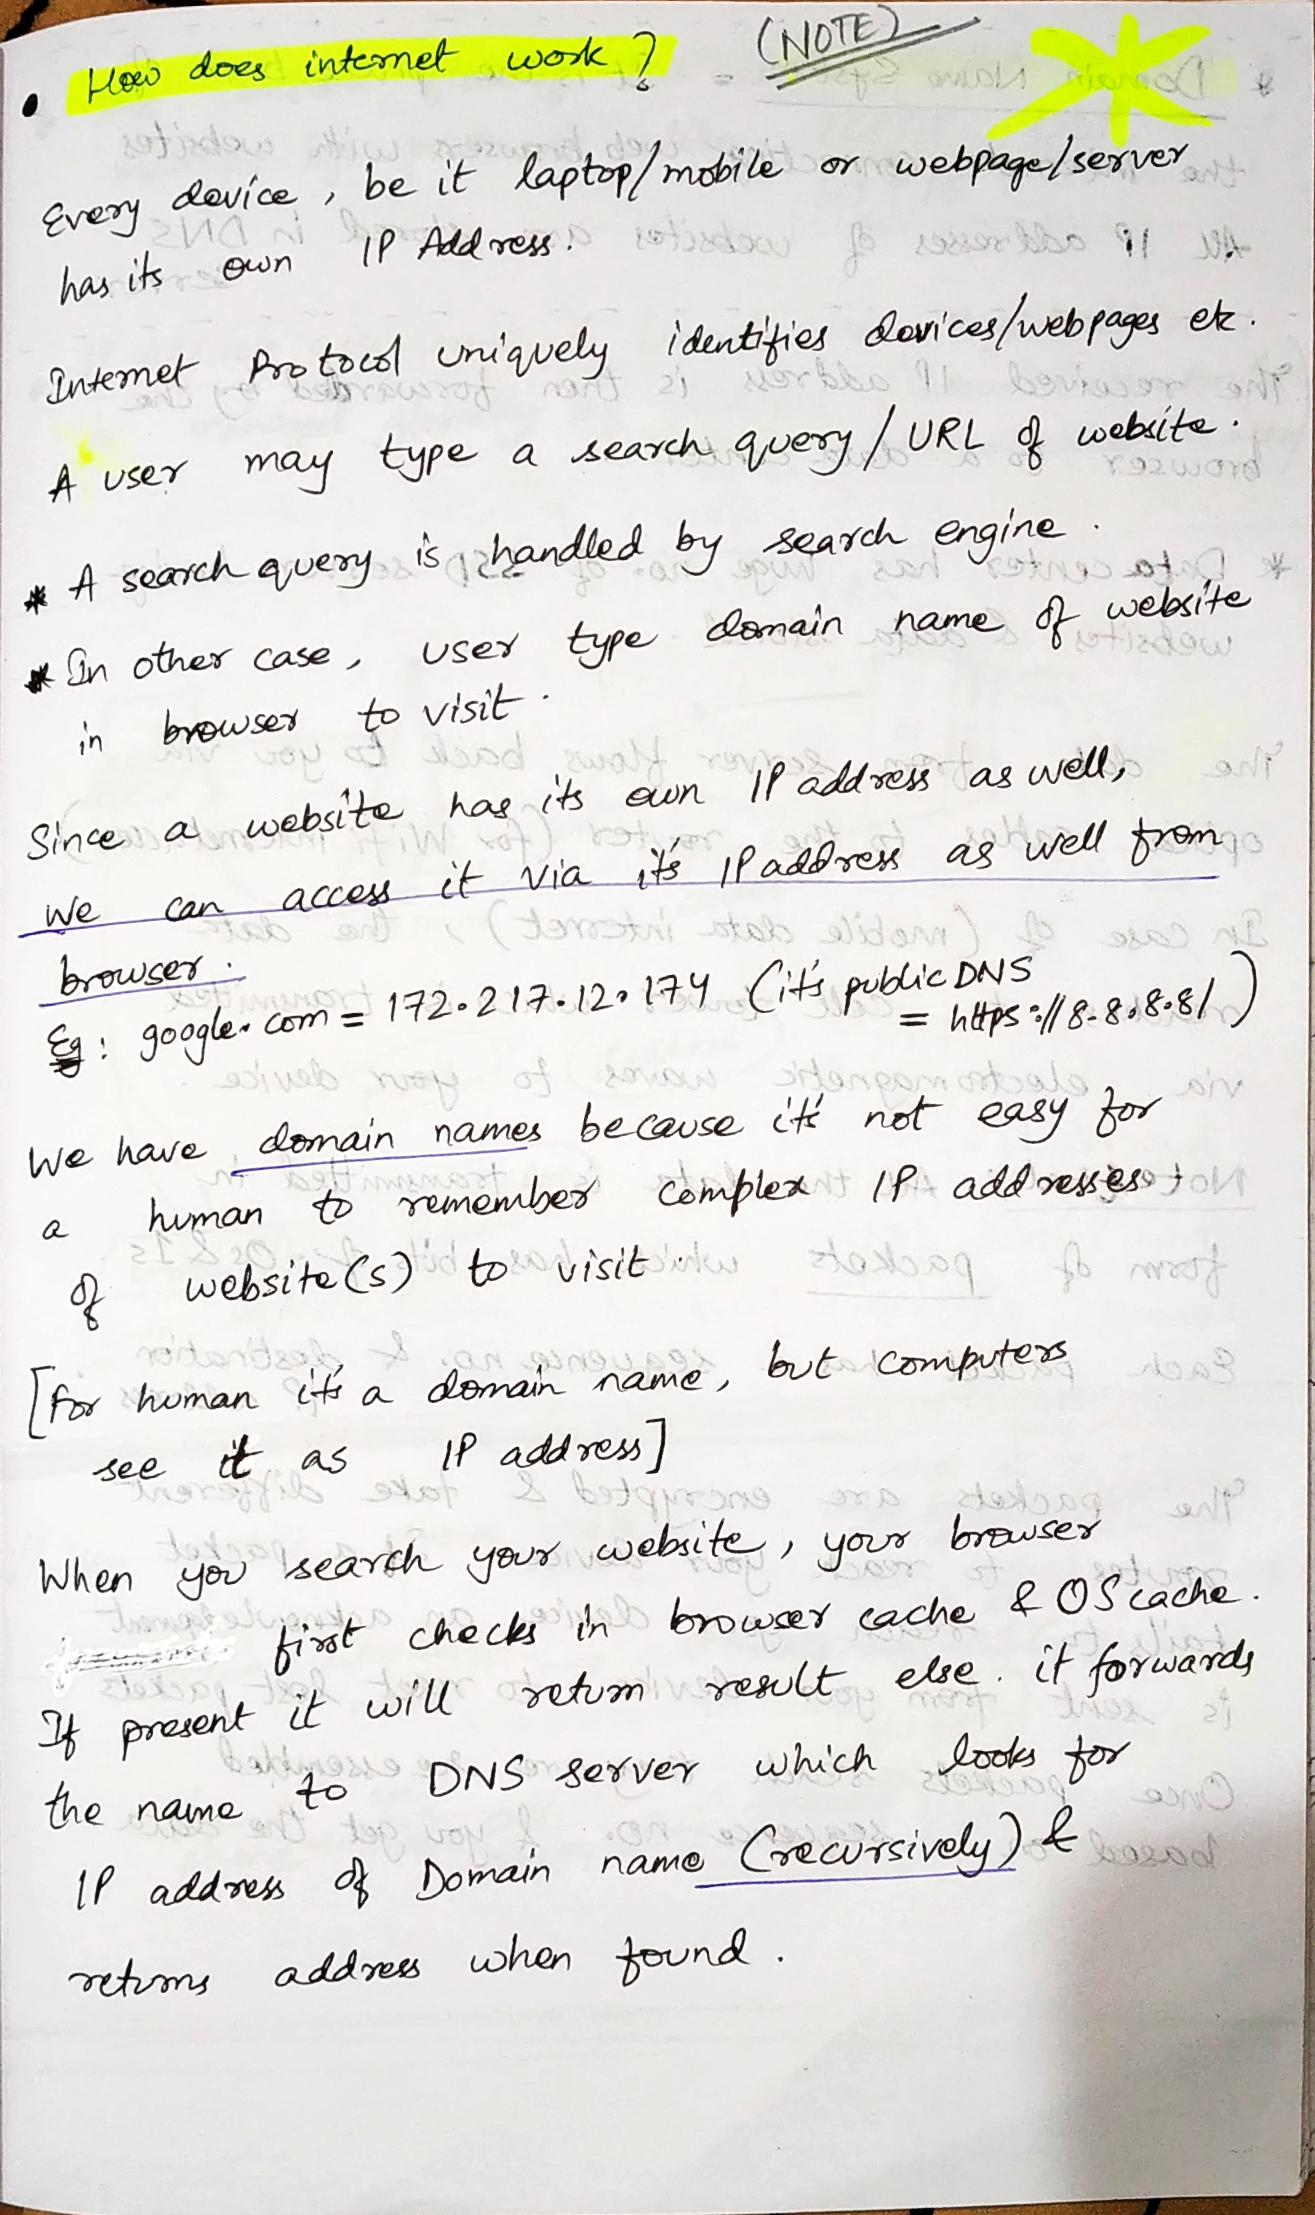 • How does internet work? (NOTE)
Every device, be it laptop/mobile or webpage/server
has its own IP Address.
Internet Protocol uniquely identifies devices/webpages etc.
A user may type a search query / URL of website.
* A search query is handled by search engine.
* In other case, user type domain name of website
in browser to visit.
Since a website has its own IP address as well,
we can access it via it's IP address as well from
browser.
Eg: google.com = 172.217.12.174 (it's public DNS
= https://8.8.8.8/)
We have domain names because it's not easy for
a human to remember complex IP addresses
of website(s) to visit.
[For human it's a domain name, but computers
see it as IP address]
When you search your website, your browser
first checks in browser cache & OS cache.
If present it will return result else. it forwards
the name to DNS server which looks for
IP address of Domain name (recursively) &
returns address when found.